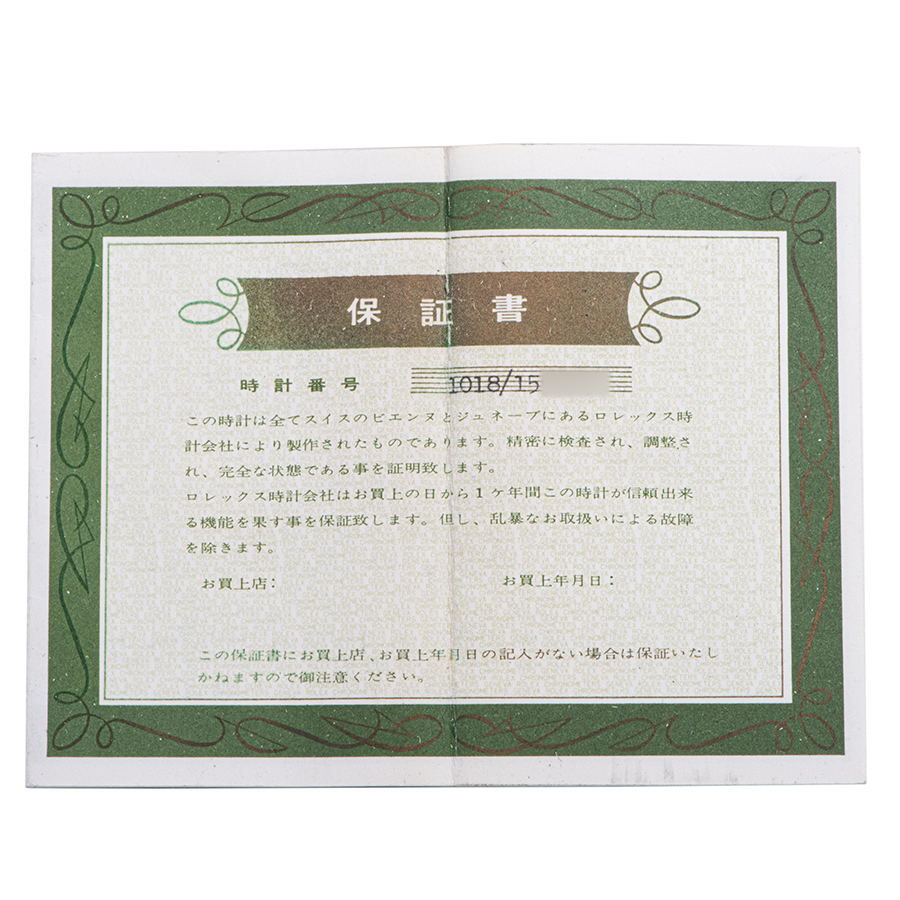 保証書
時計番号 1018/15
この時計は全てスイスのビエンヌとジュネーブにあるロレックス時
計会社により製作されたものであります。精密に検査され、調整さ
れ、完全な状態である事を証明致します。
ロレックス時計会社はお買上の日から1ケ年間この時計が信頼出来
る機能を果す事を保証致します。但し、乱暴なお取扱いによる故障
を除きます。
お買上店： お買上年月日：
この保証書にお買上店、お買上年月日の記入がない場合は保証いたし
かねますので御注意ください。